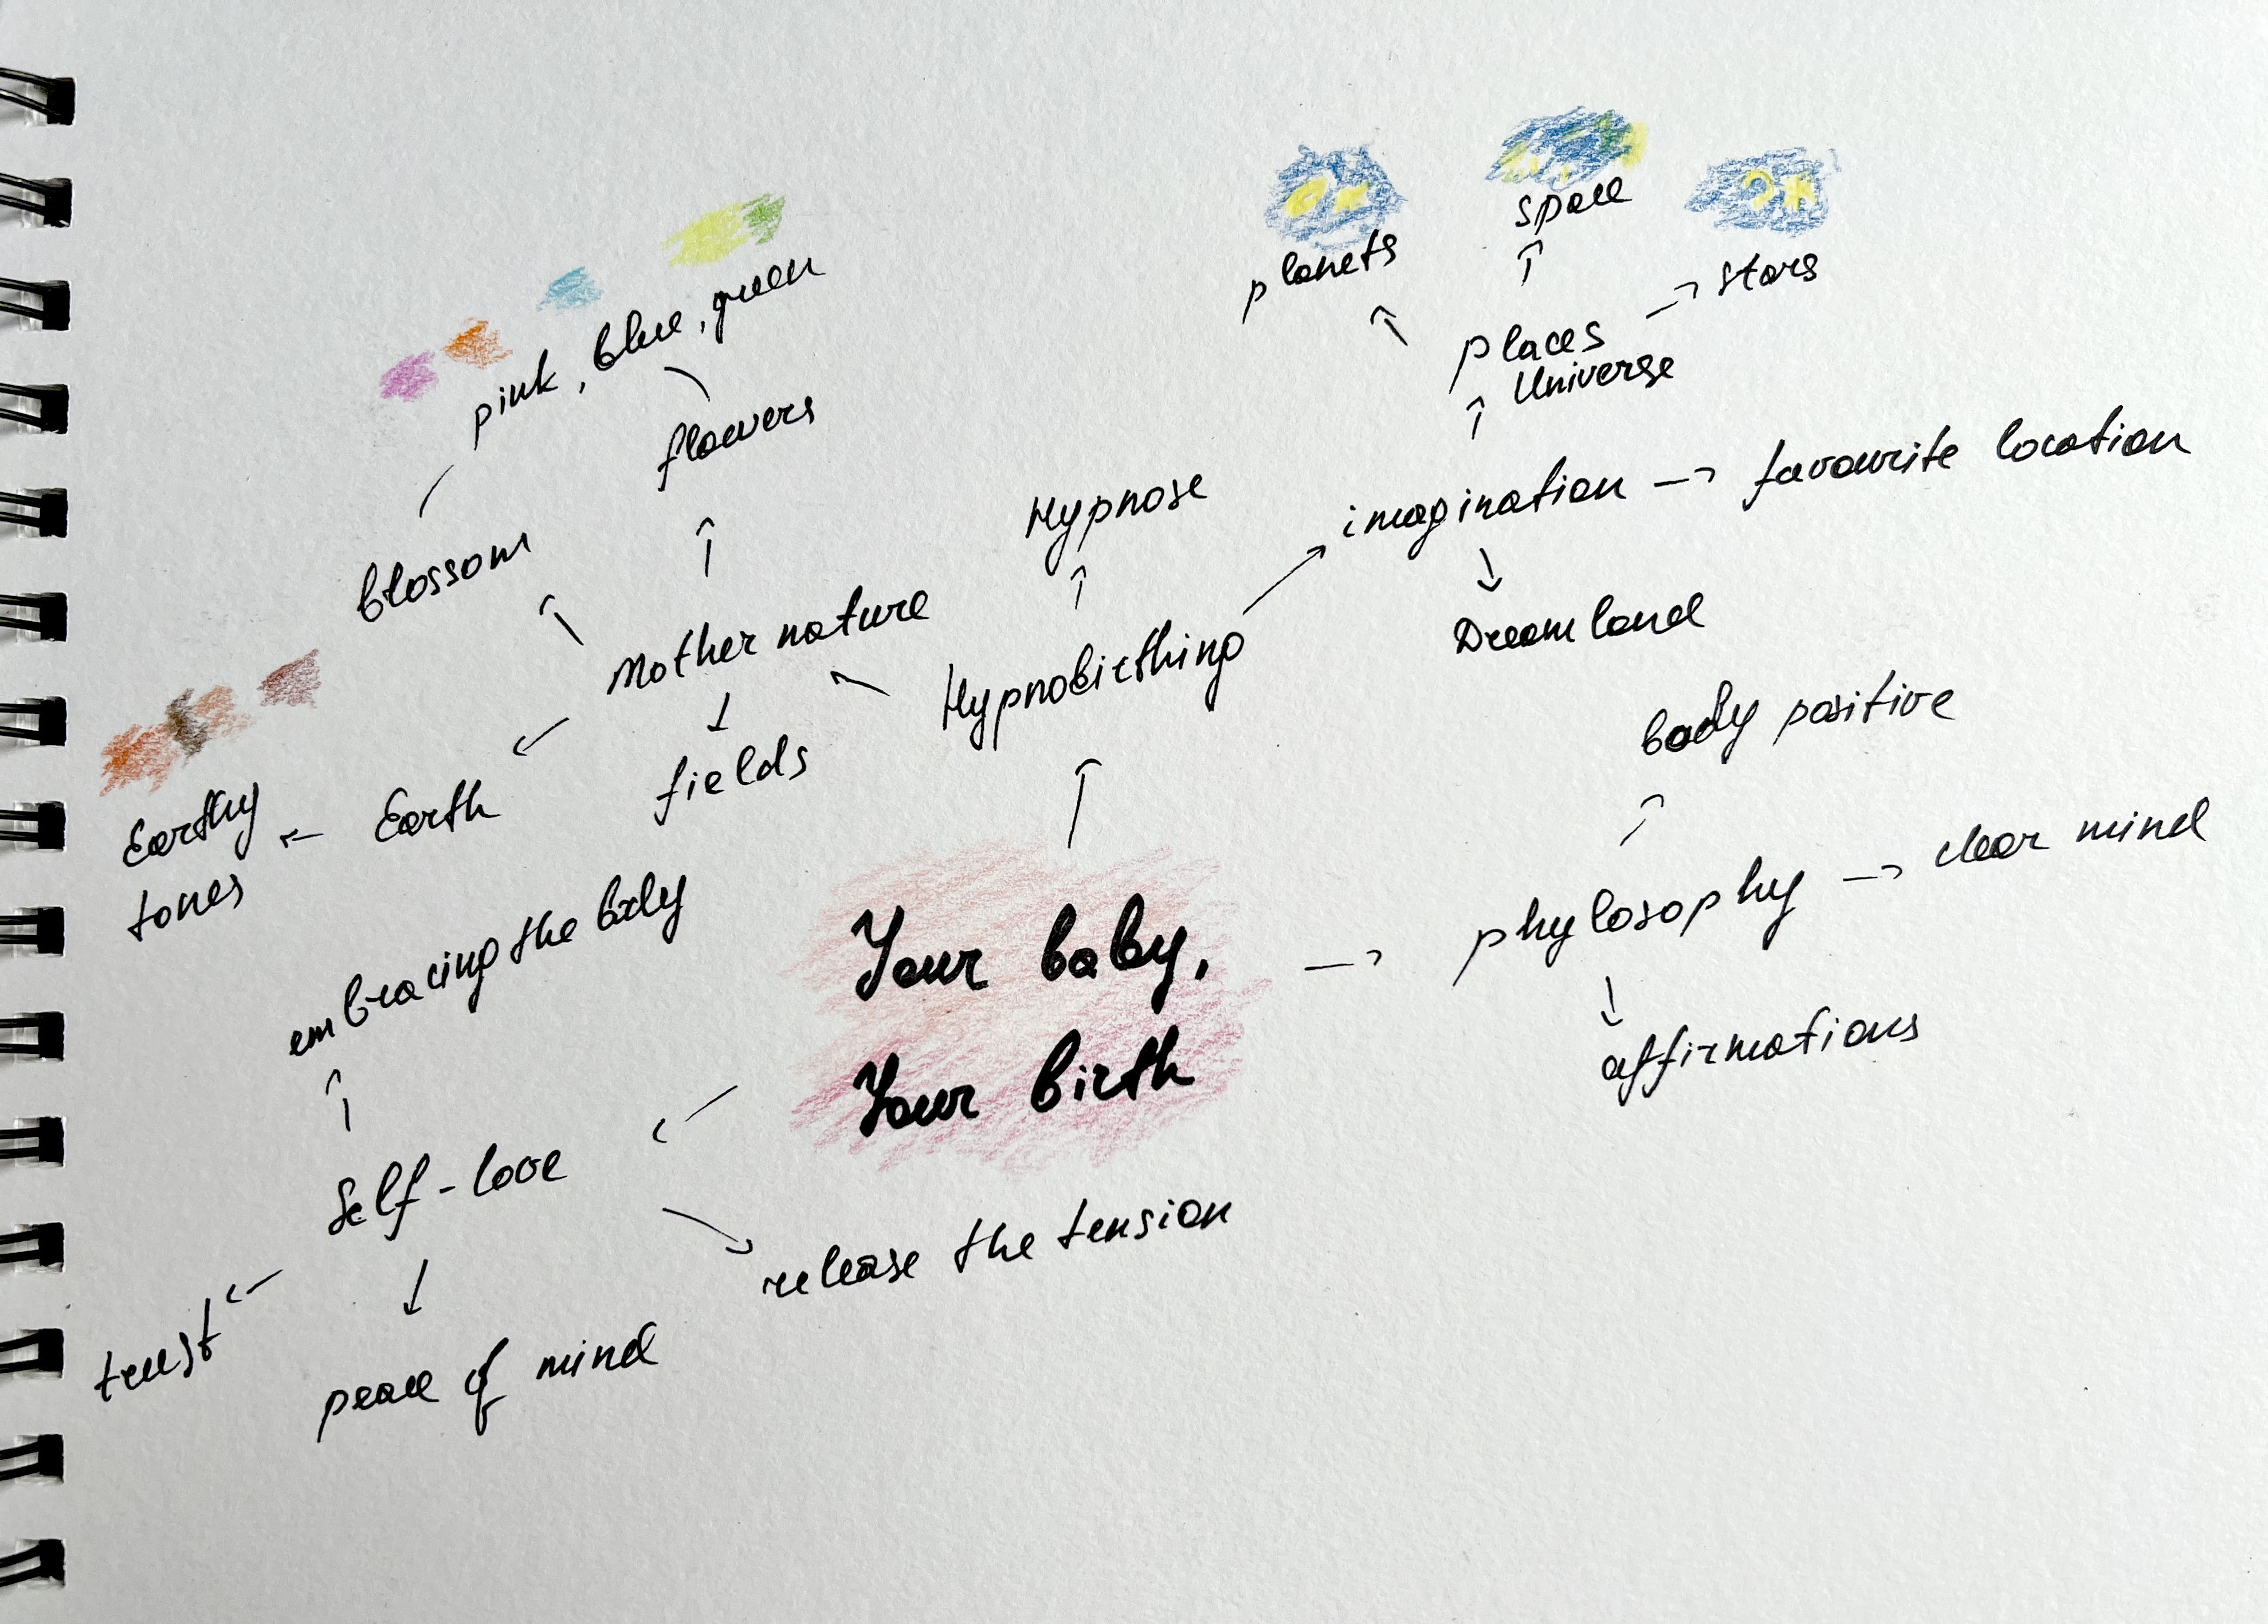 planets
space
stars
places
Universe
pink, blue, green
flowers
blossom
Hypnose
imagination
favourite location
Dreamland
Mother nature
Hypnobirthing
fields
Earth
Earthy
tones
body positive
clear mind
phylosophy
affirmations
Your baby,
Your birth
embracing the body
Self-love
release the tension
trust
peace of mind